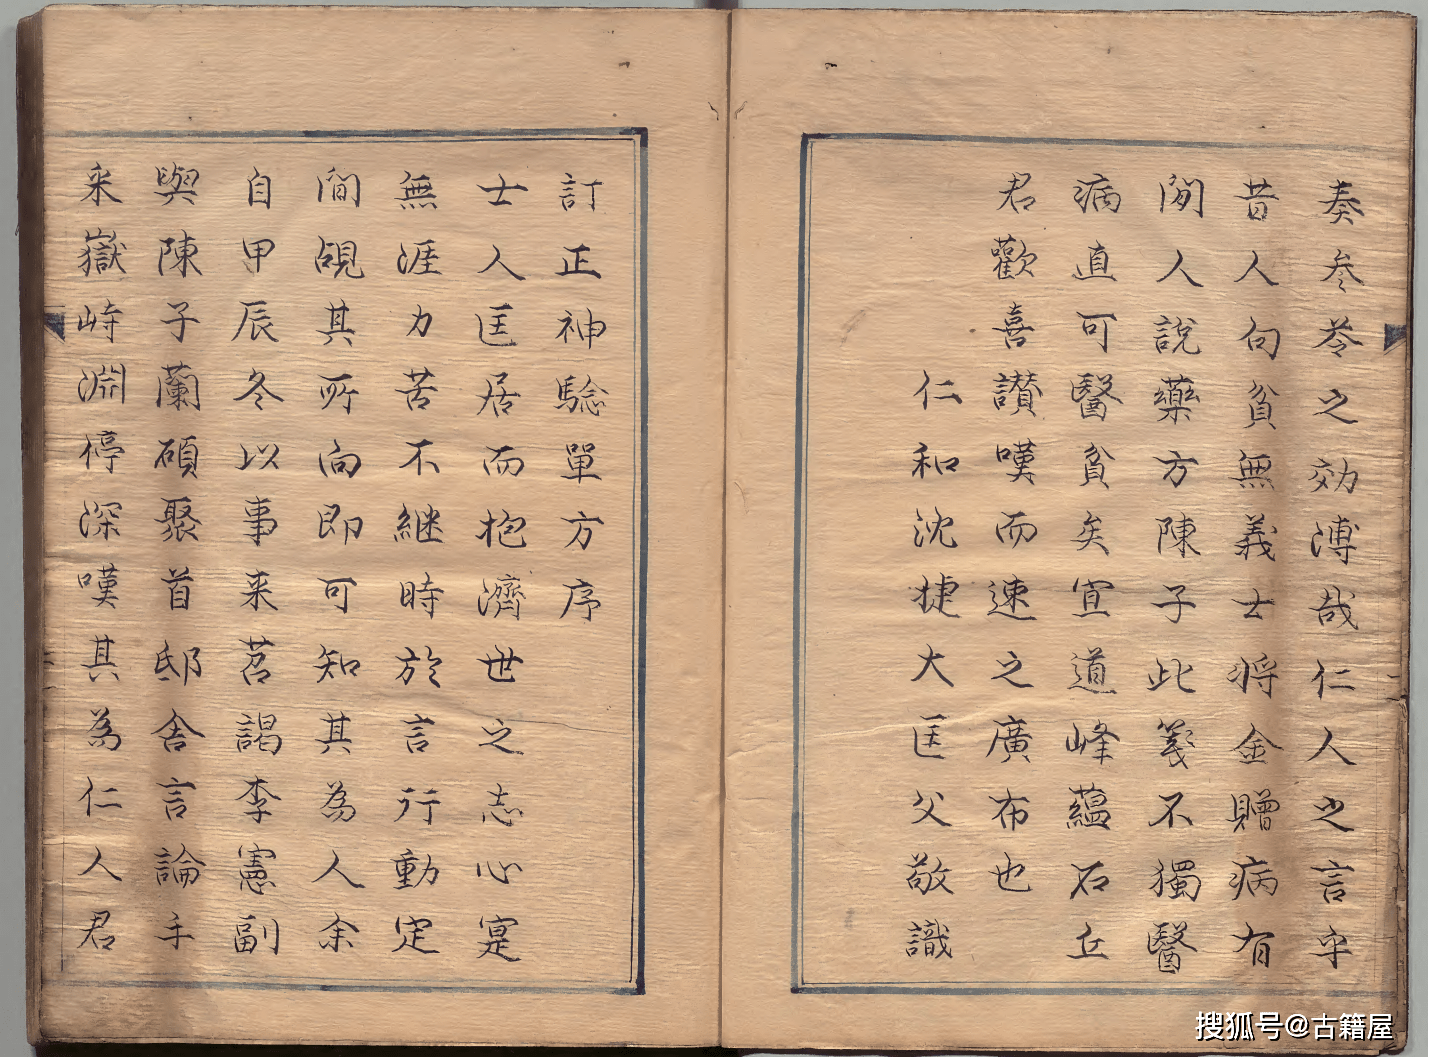 奏参苓之効溥哉仁人之言乎
昔人向貧無義士将金贈病有
閒人說藥方陳子此箋不獨醫
病直可醫貧矣宜道峰蘊石丘
君歡喜讃嘆而速之廣布也
仁和沈捷大匡父敬識
訂正神驗單方序
士人匡居而抱濟世之志心寔
無涯力苦不継時於言行動定
間覘其所向即可知其為人余
自甲辰冬以事来苕謁李憲副
與陳子蘭碩聚首邸舍言論手
采嶽峙淵停深嘆其為仁人君
搜狐号@古籍屋